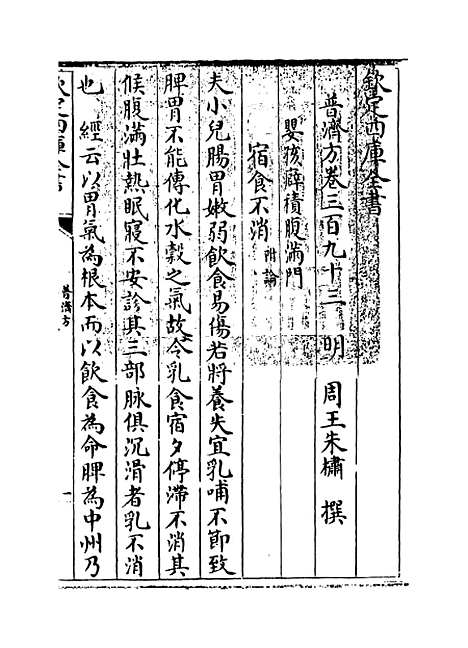 欽定四庫全書
普濟方卷三百九十三　明　周王朱橚　撰
嬰孩癖積腹滿門
宿食不消 附論
夫小兒腸胃嫩弱飲食易傷若將養失宜乳哺不節致
脾胃不能傳化水穀之氣故令乳食宿夕停滯不消其
候腹滿壯熱眠寢不安診其三部脉俱沉滑者乳不消
也　經云以胃氣為根本而以飲食為命脾為中州乃
欽定四庫全書
普濟方
一